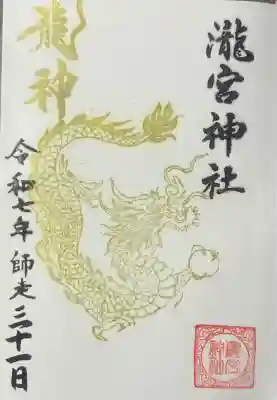 瀧宮神社
龍神
令和七年師走三十一日